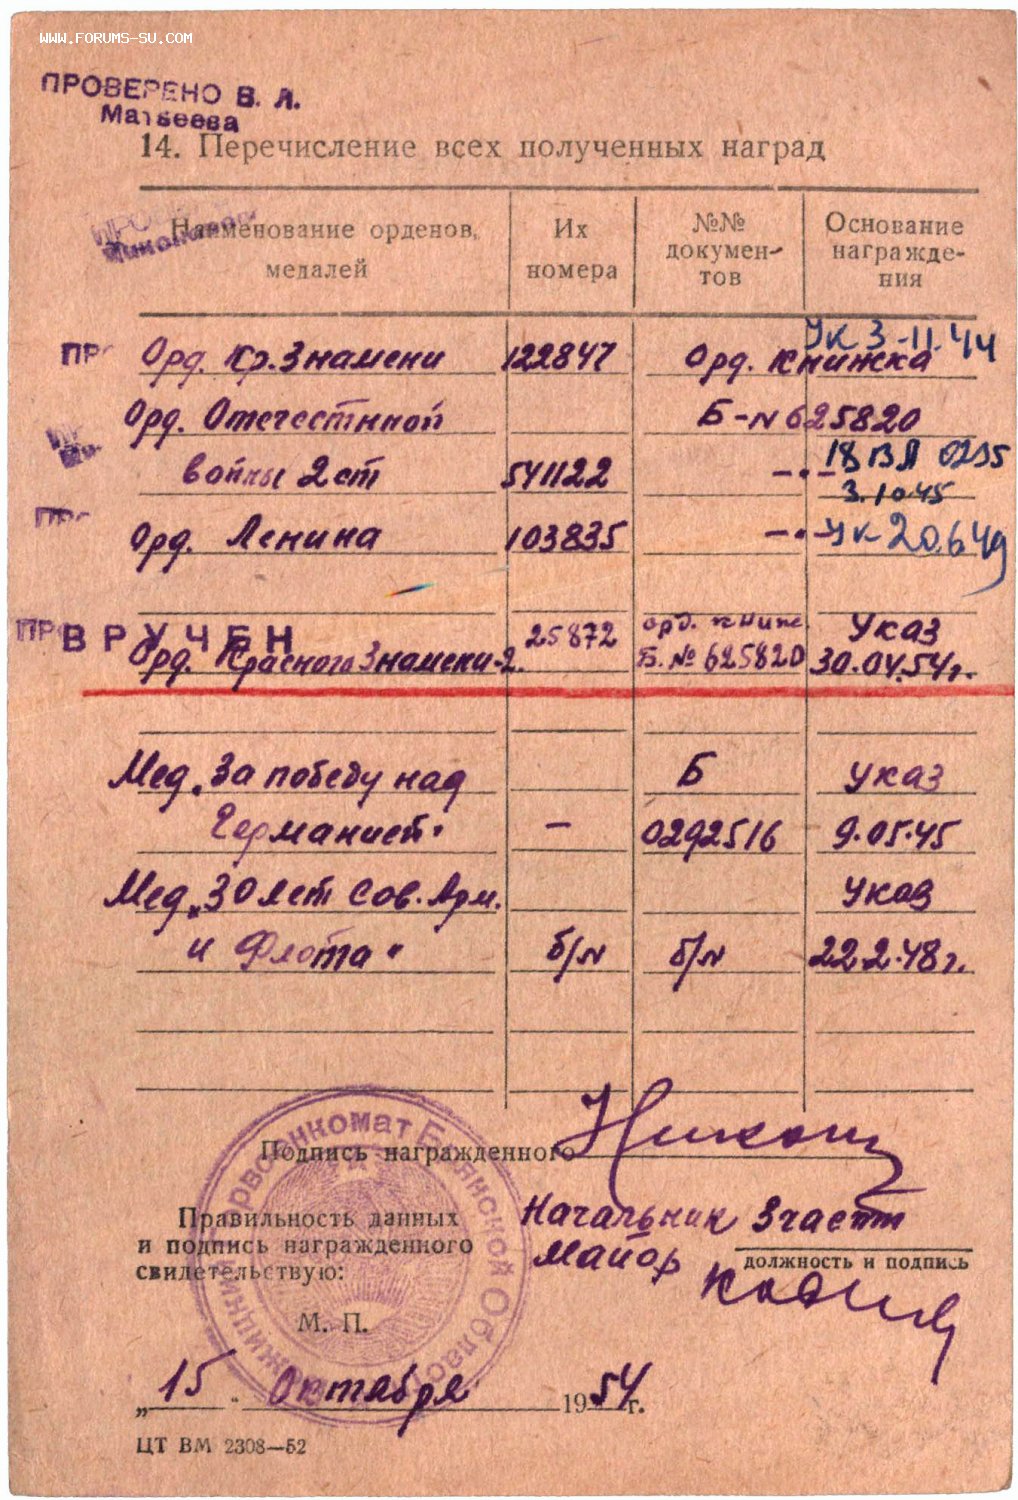 WWW.FORUMS-SU.COM
ПРОВЕРЕНО В. Л.
Матвеева
14. Перечисление всех полученных наград
Наименование орденов, медалей
Их номера
№№ докумен- тов
Основание награжде- ния
Орд. Кр. Знамени 122847 Орд. книжка Ук 3-11.44
Орд. Отечестнной Б-N 625820
войны 2 ст 541122 -"- 18 ВЛ 0235
3.10.45
Орд. Ленина 103835 -"- Ук 20.6.49
ВРУЧЕН
25872 орд. книж. Указ
Орд. Красного Знамени-2. Б. № 625820 30.04.54г.
Мед. „За победу над Б Указ
Германией" — 0292516 9.05.45
Мед. „30 лет Сов. Арм. Указ
и Флота" б/N б/N 22.2.48г.
Подпись награжденного
Правильность данных
и подпись награжденного
свидетельствую:
Начальник 3 части
Майор
должность и подпись
М. П.
„15" Октября 1954 г.
ЦТ ВМ 2308—52